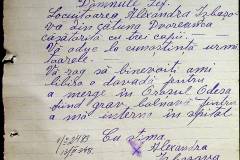 Domnule Șef.
Locuitoarea Alexandra Izbaso-
va din cătuna Dvoreanca
căsătorită cu trei copii.
Vă aduc la cunoștință urmă-
toarele.
Vă rog să binevoiți ami
elibera o dovadă pentru
a merge în Orașul Odesa
fiind grav bolnavă pentru
a mă interna în spital
Cu stima
Alexandra
Izbasova